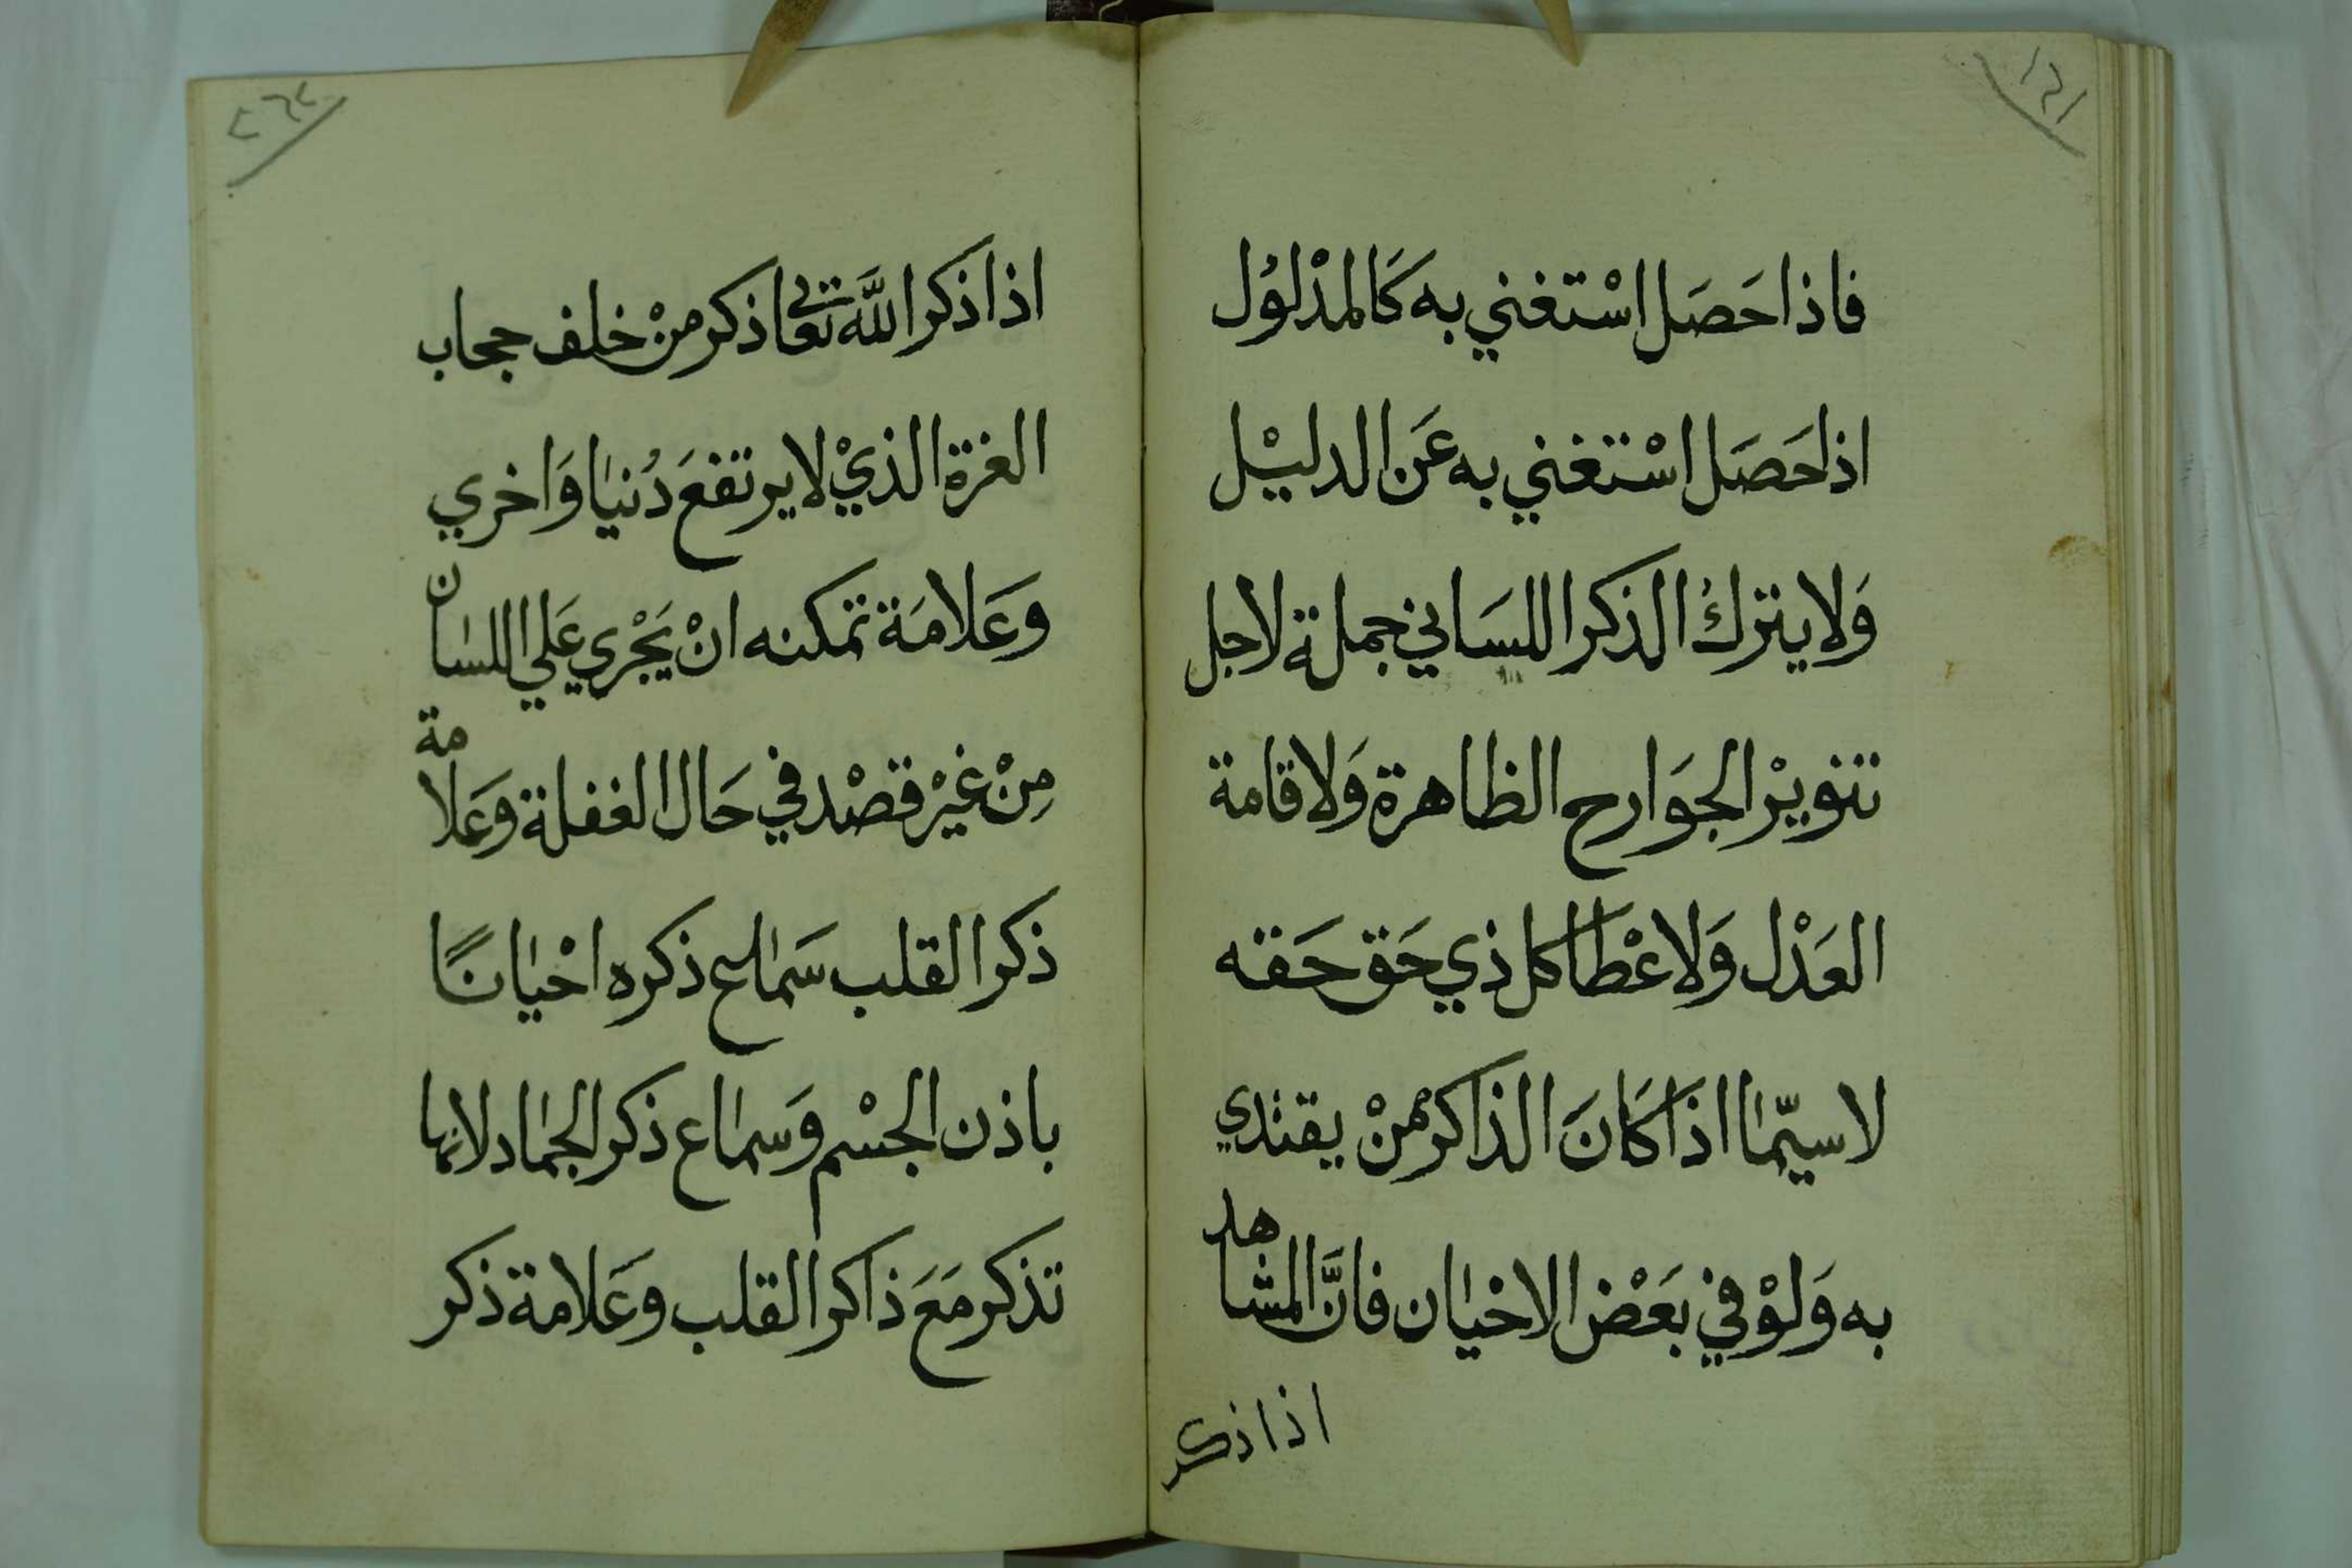 فاذا حَصَل اسْتغني به كَالمدْلوُل
اذا حَصَل اسْتغني به عَن الدليْل
وَلا يترك الذكر اللسَاني جملة لاجل
تنويْر الجوَارح الظاهرة وَلاقامة
العَدْل وَلاعْطا كل ذي حَق حَقه
لا سيّما اذا كَانَ الذاكر ممنْ يقتدي
به وَلوْ في بَعْض الاحْيان فانَّ المشاهد
اذا ذكر
اذا ذكر اللَّه تعالي ذكر منْ خلف حجاب
العزة الذيْ لا يرتفعَ دُنيا وَاخري
وعَلامَة تمكنه انْ يَجْري عَلي اللسان
مِنْ غيْر قصْد في حَال الغفلة وعَلامة
ذكر القلب سَماع ذكره احْيانًا
باذن الجسْم وَسماع ذكر الجماد لانها
تذكر مَعَ ذاكر القلب وعَلامة ذكر